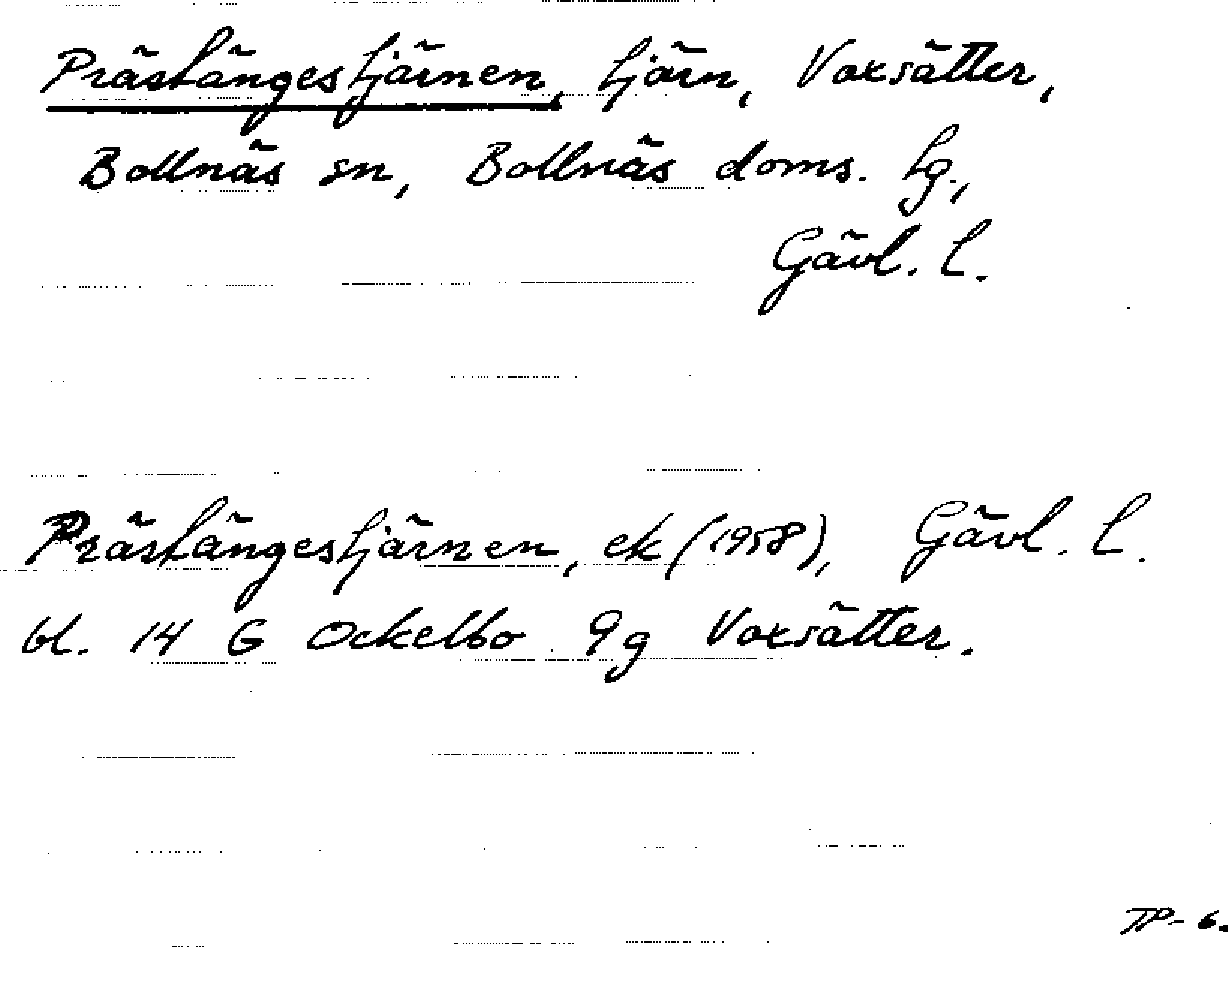 Prästängestjärnen, tjärn, Voxsätter,
Bollnäs sn, Bollnäs doms. tg.,
Gävl. l.
Prästängestjärnen, ek (1958), Gävl. l.
bl. 14 G Ockelbo 9g Voxsätter.
TP-6.